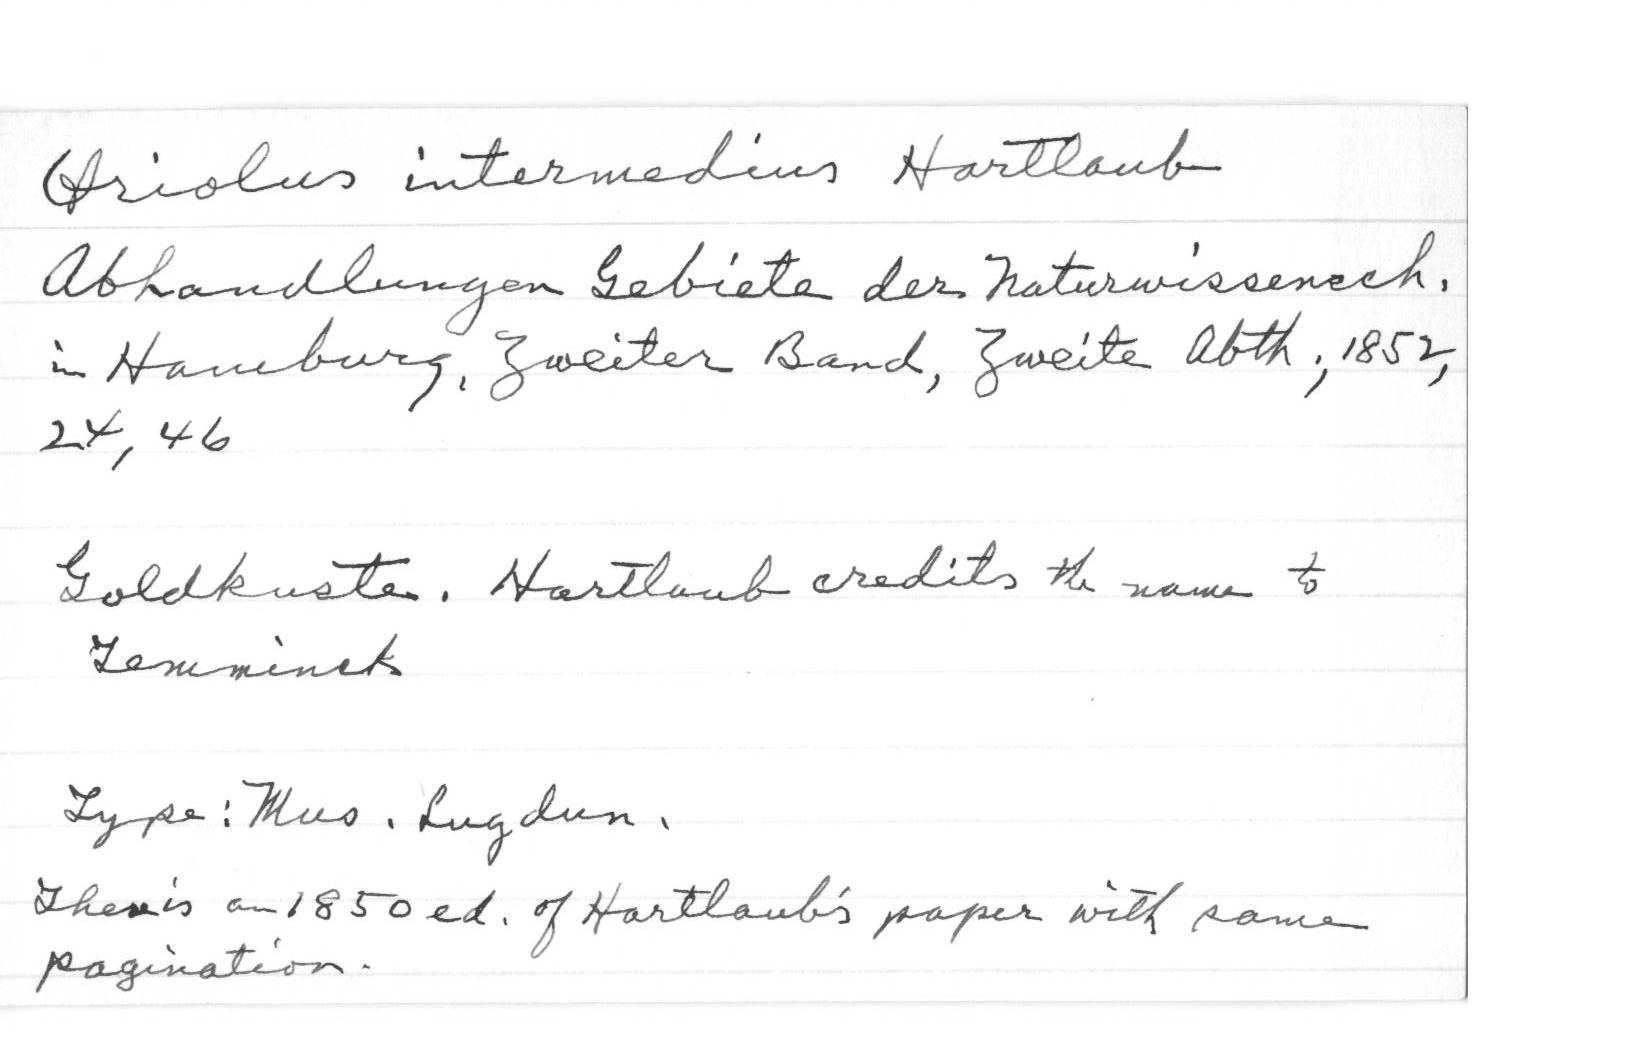 Oriolus intermedius Hartlaub
Abhandlungen Gebiete der Naturwissensch.
in Hamburg, Zweiter Band, Zweite Abth., 1852,
24, 46
Goldkuste. Hartlaub credits the name to
Temminck
Type: Mus. Lugdun.
There is an 1850 ed. of Hartlaub's paper with same
pagination.